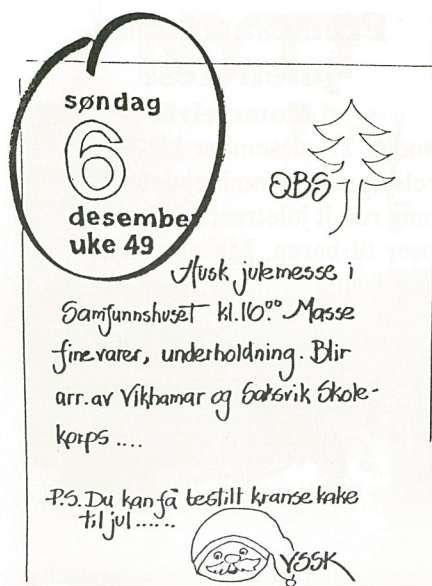 søndag
6
desember
uke 49
OBS!
Husk julemesse i
Samfunnshuset kl.16⁰⁰. Masse
fine varer, underholdning. Blir
arr. av Vikhamar og Saksvik Skole-
korps ....
P.S. Du kan få bestilt kransekake
til jul ......
VSSK